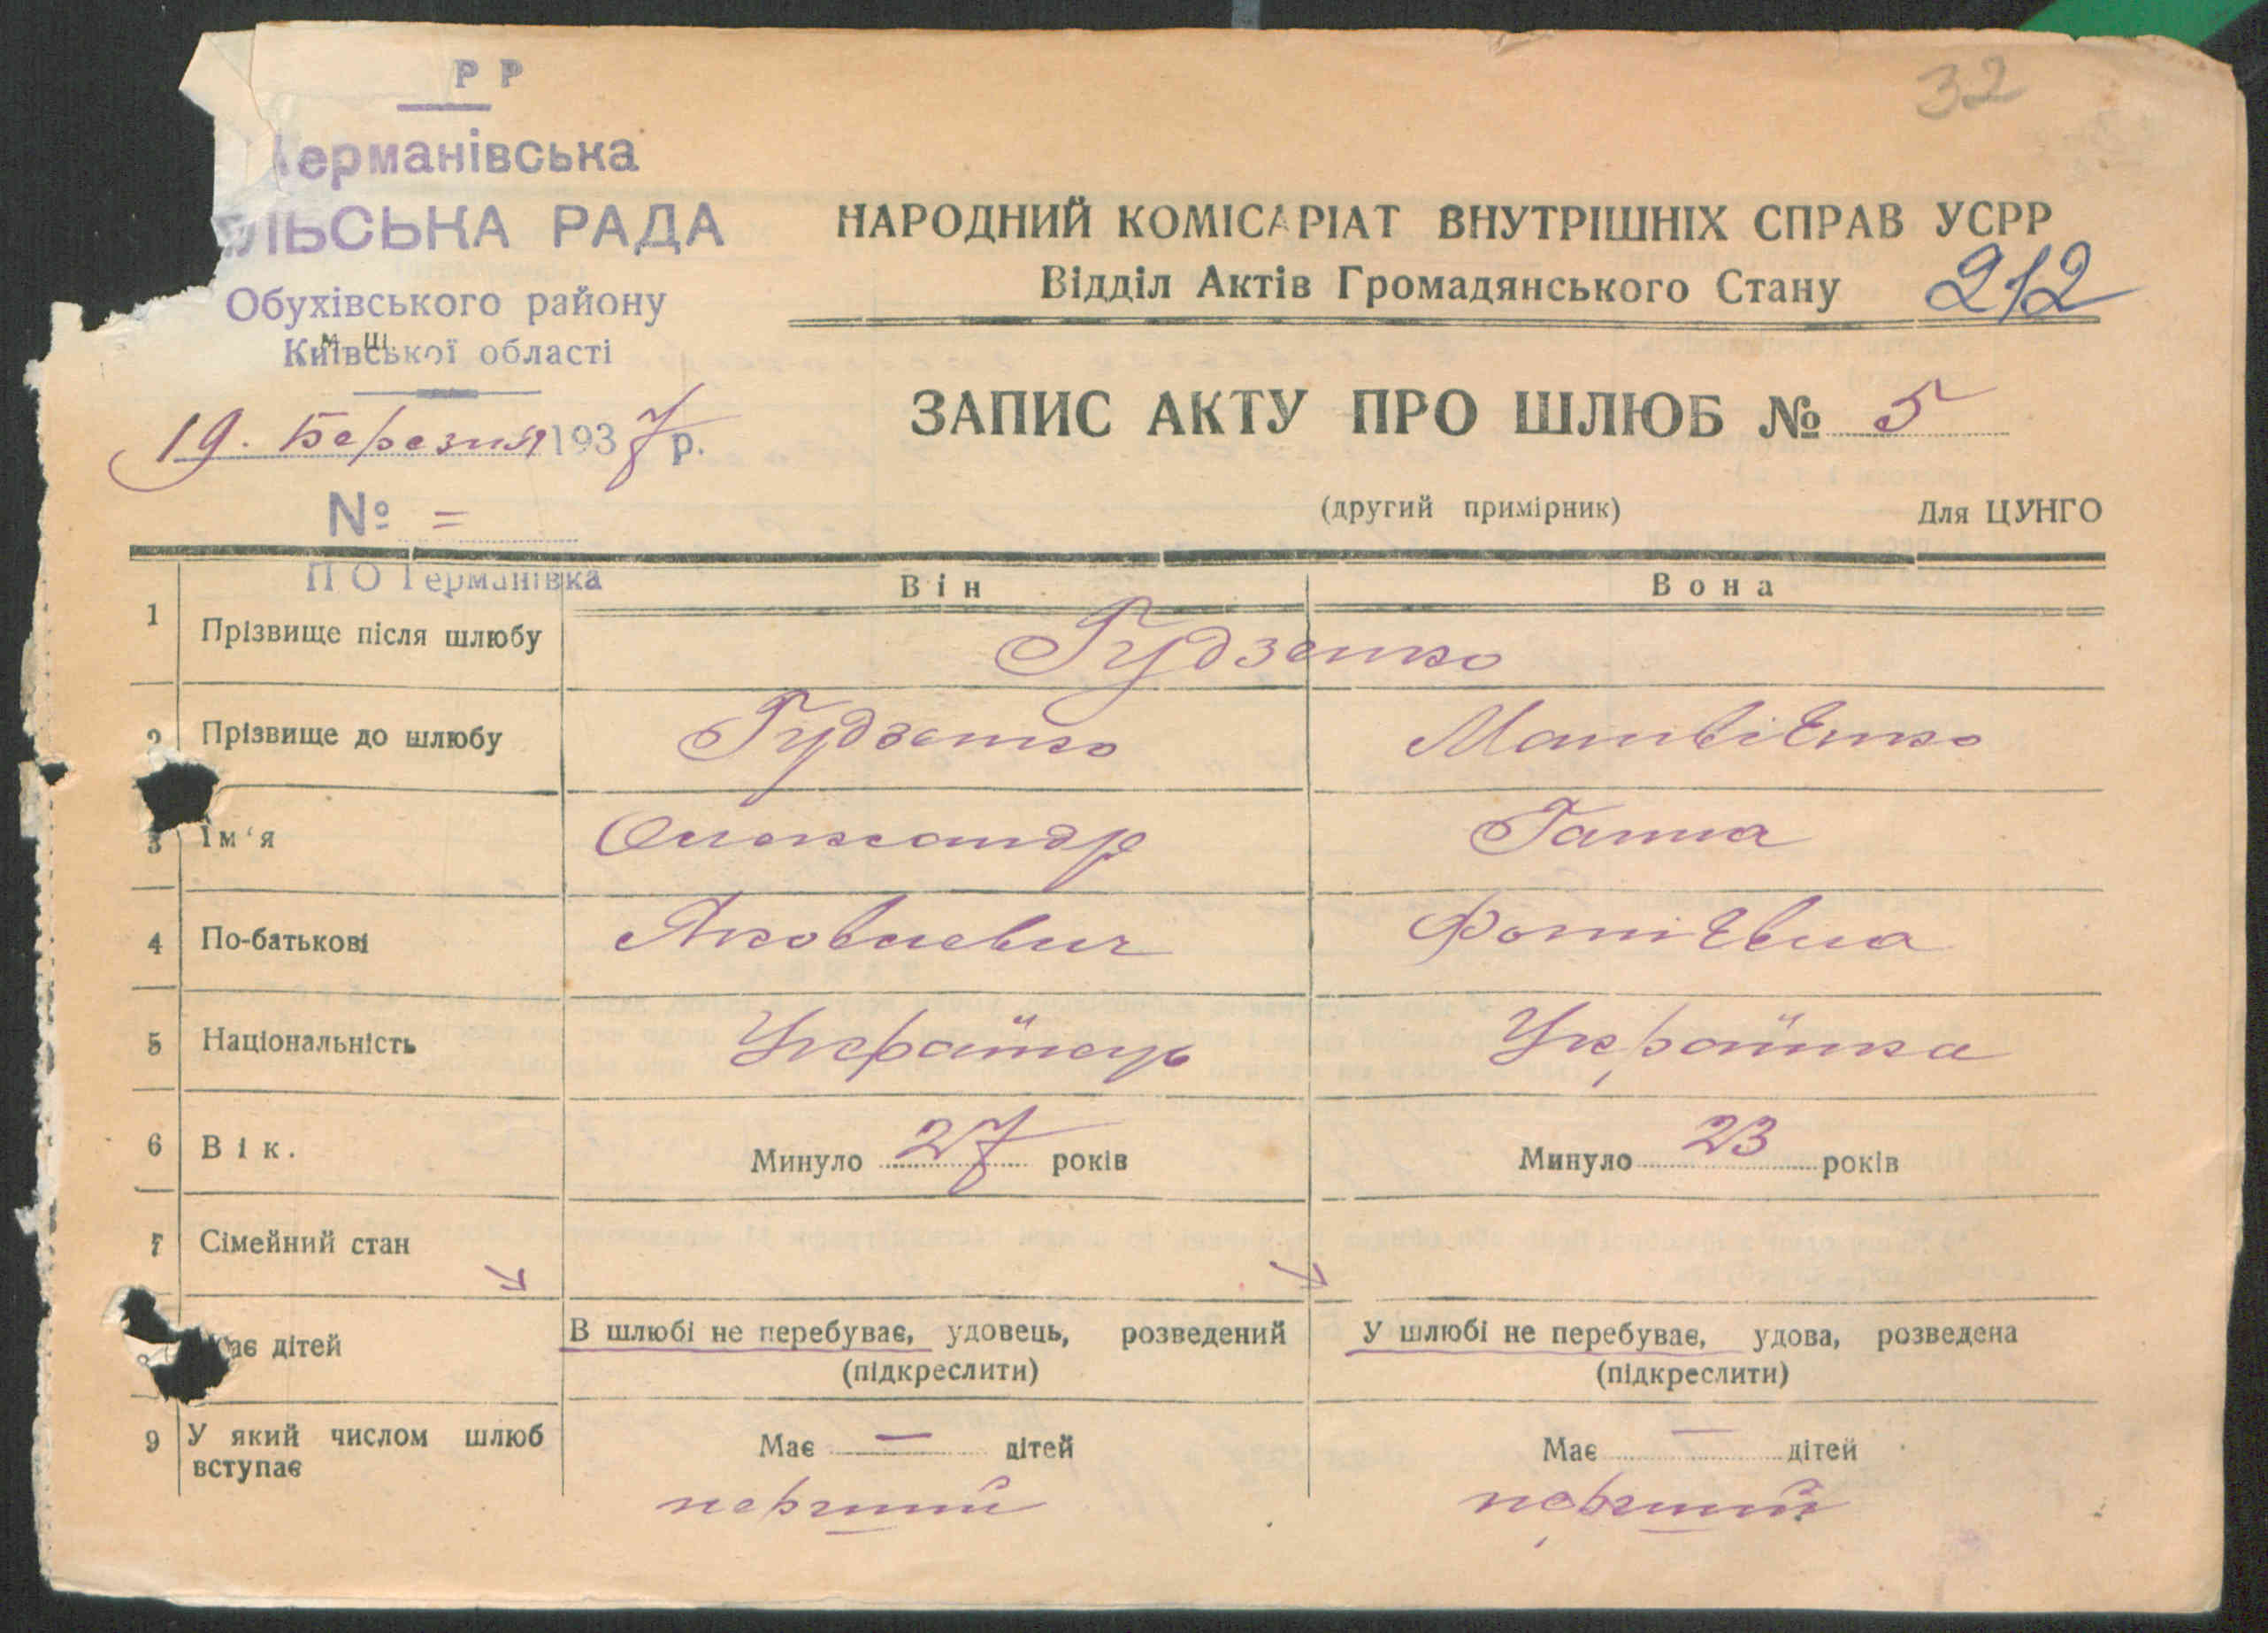 РР
32
ерманівська
ЛЬСЬКА РАДА
НАРОДНИЙ КОМІСАРІАТ ВНУТРІШНІХ СПРАВ УСРР
Відділ Актів Громадянського Стану 212
Обухівського району
м Ш
Київської області
19. Березня 1937 р.
ЗАПИС АКТУ ПРО ШЛЮБ № 5
№ =
(другий примірник) Для ЦУНГО
П О Германівка
Він Вона
1 Прізвище після шлюбу Гудзенко
2 Прізвище до шлюбу Гудзенко Матвієнко
3 Ім'я Олександр Ганна
4 По-батькові Яковлевич Фотієвна
5 Національність Українець Українка
6 Вік. Минуло 27 років Минуло 23 років
7 Сімейний стан
8 ає дітей В шлюбі не перебуває, удовець, розведений У шлюбі не перебуває, удова, розведена
(підкреслити) (підкреслити)
9 У який числом шлюб вступає Має — дітей Має — дітей
перший перший